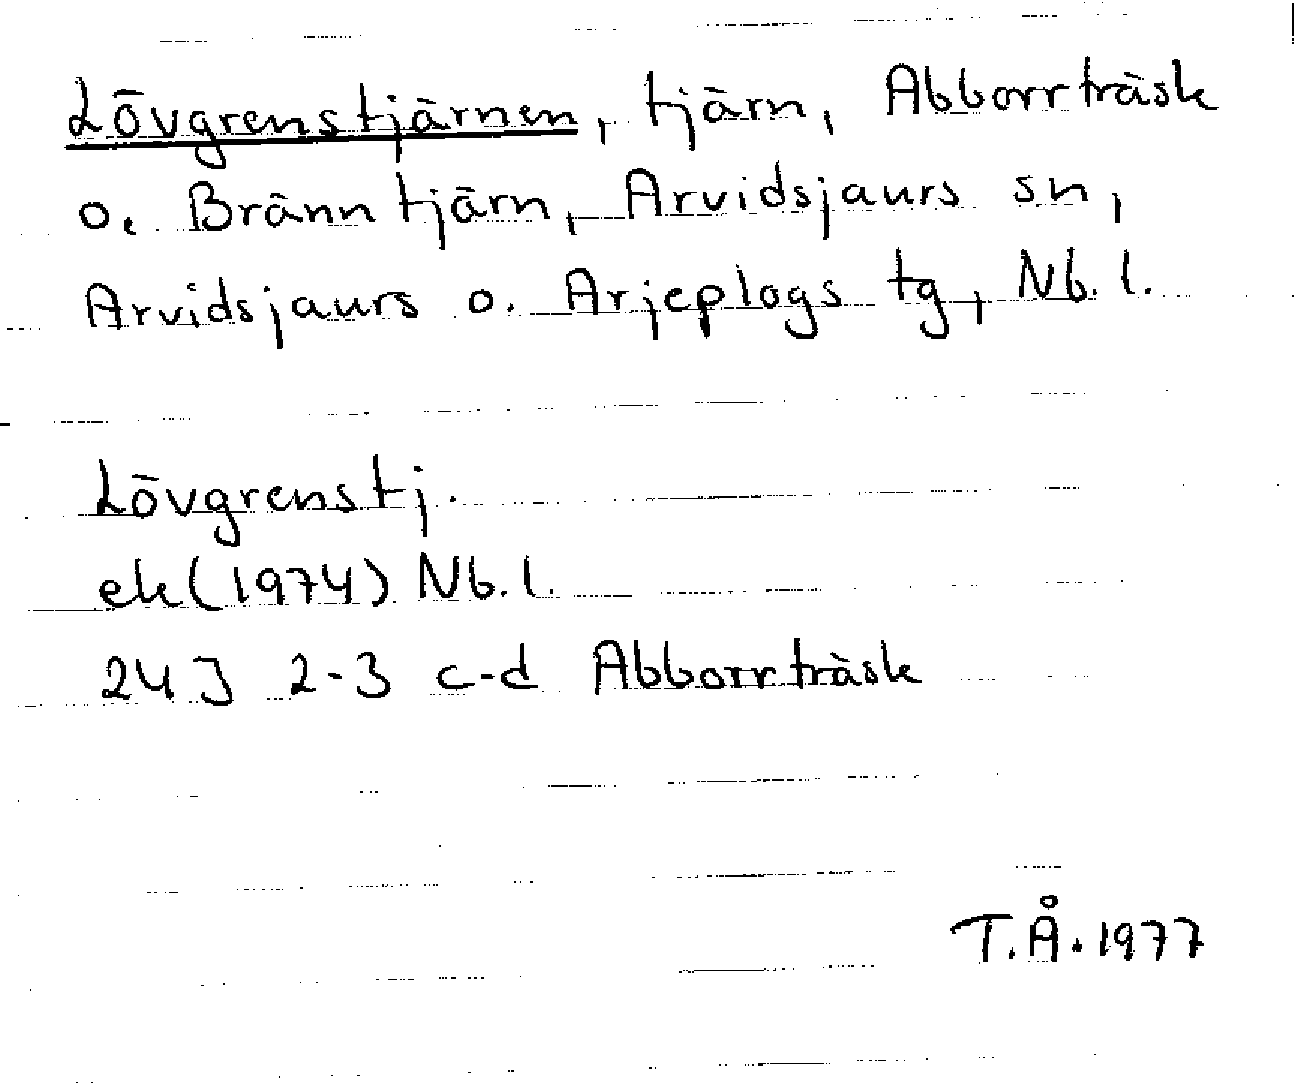 Lövgrenstjärnen, tjärn, Abborrträsk
o. Bränntjärn, Arvidsjaurs sn,
Arvidsjaurs o. Arjeplogs tg, Nb. l.
Lövgrenstj.
ek (1974) Nb. l.
24J 2-3 c-d Abborrträsk
T.Å. 1977